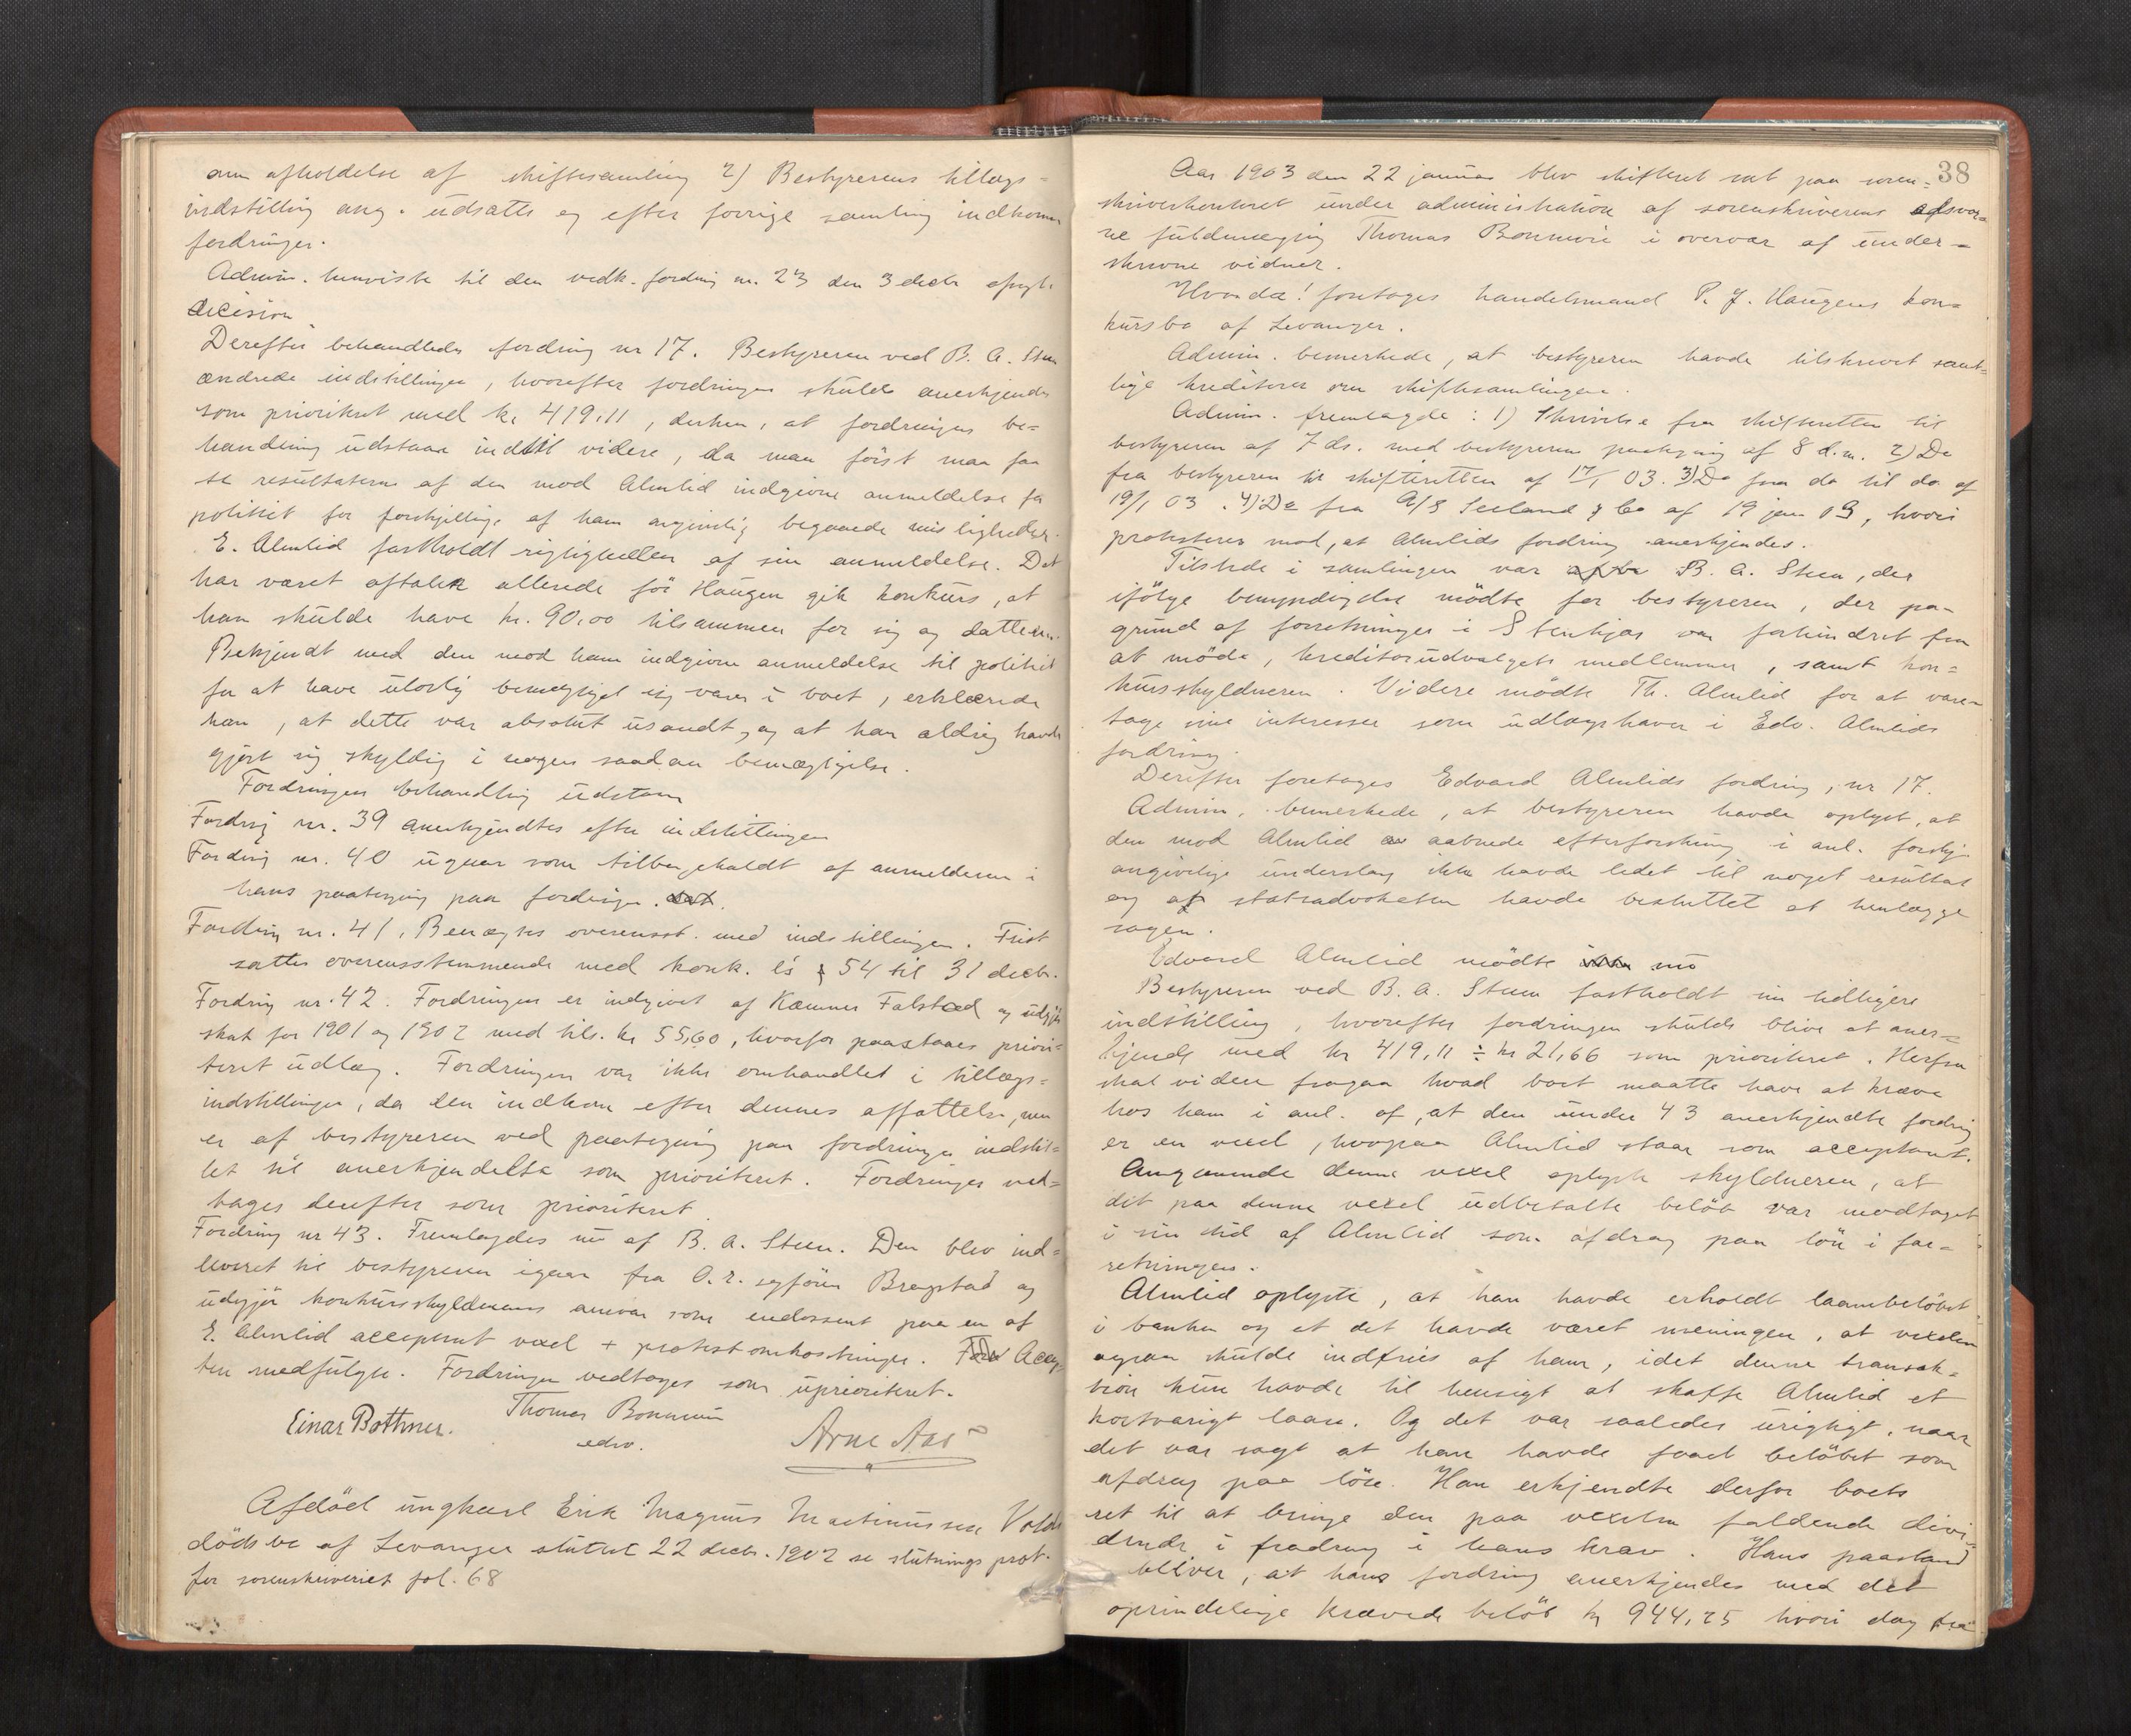 om afholdelse af skiftesamling 2) Bestyrerens tillægs-
indstilling ang. udsatte og efter forrige samling indkomne
fordringer.
Admin. henviste til den vedk. fordring nr. 23 den 3 decbr afsagte
decision
Derefter behandledes fordring nr 17. Bestyreren ved B. A. Steen
ændrede indstillingen, hvorefter fordringen skulde anerkjendes
som prioritert med kr 419,11, derhen, at fordringens be-
handling udstaar indtil videre, da man først maa faa
se resultaterne af den mod Almlid indgivne anmeldelse for
politiet for forskjellige af ham angivelig begaaede misligheder.
E. Almlid fastholdt rigtigheden af sin anmeldelse. Det
har været aftalen allerede før Haugen gik konkurs, at
han skulde have kr. 90,00 tilsammen for sig og datteren.
Bekjendt med den mod ham indgivne anmeldelse til politiet
for at have ulovlig bemægtiget sig varer i boet, erklærede
han, at dette var absolut usandt, og at han aldrig havde
gjort sig skyldig i nogen saadan bemægtigelse.
Fordringens behandling udstaar
Fordring nr. 39 anerkjendtes efter indstillingen
Fordring nr. 40 udgaar som tilbagekaldt af anmelderen i
hans paategning paa fordringen.
Fordring nr. 41. Benægtes overensst. med indstillingen. Frist
sattes overensstemmende med konk. ls § 54 til 31 decbr.
Fordring nr. 42. Fordringen er indgivet af Kæmner Falstad og udgjør
skat for 1901 og 1902 med tils. kr 55,60, hvorfor paastaaes priori-
teret udlæg. Fordringen var ikke omhandlet i tillægs-
indstillingen, da den indkom efter dennes affattelse, men
er af bestyreren ved paategning paa fordringen indstil-
let til anerkjendelse som prioriteret. Fordringen ved-
tages derefter som prioriteret.
Fordring nr 43. Fremlagdes nu af B. A. Steen. Den blev ind-
leveret til bestyreren igaar fra O. r. sagfører Bragstad og
udgjør konkursskyldnerens ansvar som endossent paa en af
E. Almlid acceptert vexel + protestomkostninger. Accep-
ten medfulgte. Fordringen vedtages som uprioriteret.
Einar Bottner. Thomas Bonnevie Arne Aas
edsv.
Afdød ungkarl Erik Magnus Martinussen
dødsbo af Levanger sluttet 22 decbr. 1902 se slutnings prot.
for sorenskriveriet fol. 68
38
Aar 1903 den 22 januar blev skifteret sat paa soren-
skriverkontoret under administration af sorenskriverens edsvor-
ne fuldmægtig Thomas Bonnevie i overvær af under-
skrevne vidner.
Hvorda! foretages handelsmand P. J. Haugens kon-
kursbo af Levanger.
Admin. bemerkede, at bestyreren havde tilskrevet samt-
lige kreditorer om skiftesamlingen.
Admin. fremlagde: 1) Skrivelse fra skifteretten til
bestyreren af 7 ds. med bestyrerens paategning af 8 d. m. 2) Do
fra bestyreren til skifteretten af 17/1 03. 3) Do fra do til do af
19/1 03. 4) Do fra A/S Seeland & Co af 19 jan 03, hvori
protesteres mod, at Almlids fordring anerkjendes.
Tilstede i samlingen var B. A. Steen, der
ifølge bemyndigelse mødte for bestyreren, der pa-
grund af forretninger i Stenkjær var forhindret fra
at møde, kreditorudvalgets medlemmer, samt kon-
kursskyldneren. Videre mødte Th. Almlid for at vare-
tage sine interesser som udlægshaver i Edv. Almlids
fordring.
Derefter foretages Edvard Almlids fordring, nr 17.
Admin. bemerkede, at bestyreren havde oplyst, at
den mod Almlid aabnede efterforskning i anl. forskj.
angivelige underslag ikke havde ledet til noget resultat
og at statsadvokaten havde besluttet at henlægge
sagen.
Edvard Almlid mødte nu
Bestyreren ved B. A. Steen fastholdt sin tidligere
indstilling, hvorefter fordringen skulde blive at aner-
kjende med kr 419,11 ÷ kr 21,66 som prioriteret. Herfra
skal videre fragaa hvad boet maatte have at kræve
hos ham i anl. af, at den under 43 anerkjendte fordring
er en vexel, hvorpaa Almlid staar som acceptant.
Angaaende denne vexel oplyste skyldneren, at
det paa denne vexel udbetalte beløb var modtaget
i sin tid af Almlid som afdrag paa løn i for-
retningen.
Almlid oplyste, at han havde erholdt laanebeløbet
i banken og at det havde været meningen, at vexelen
ogsaa skulde indfries af ham, idet denne transak-
tion kun havde til hensigt at skaffe Almlid et
kortvarigt laan. Og det var saaledes urigtigt, naar
det var sagt at han havde faaet beløbet som
afdrag paa løn. Han erkjendte derfor boets
ret til at bringe den paa vexelen faldende divi-
dende i fradrag i hans krav. Hans paastand
bliver, at hans fordring anerkjendes med det
oprindelige krævede beløb kr 944,25 hvori dog fra-